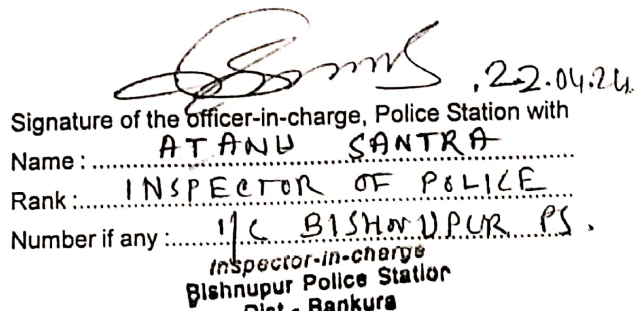 22.04.24
Signature of the officer-in-charge, Police Station with
Name : ATANU SANTRA
Rank : INSPECTOR OF POLICE
Number if any : I/C BISHNUPUR PS.
Inspector-in-charge
Bishnupur Police Station
Dist - Bankura